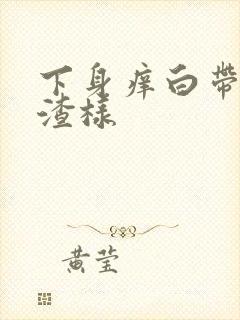 下身痒白带
渣樣
黄莹